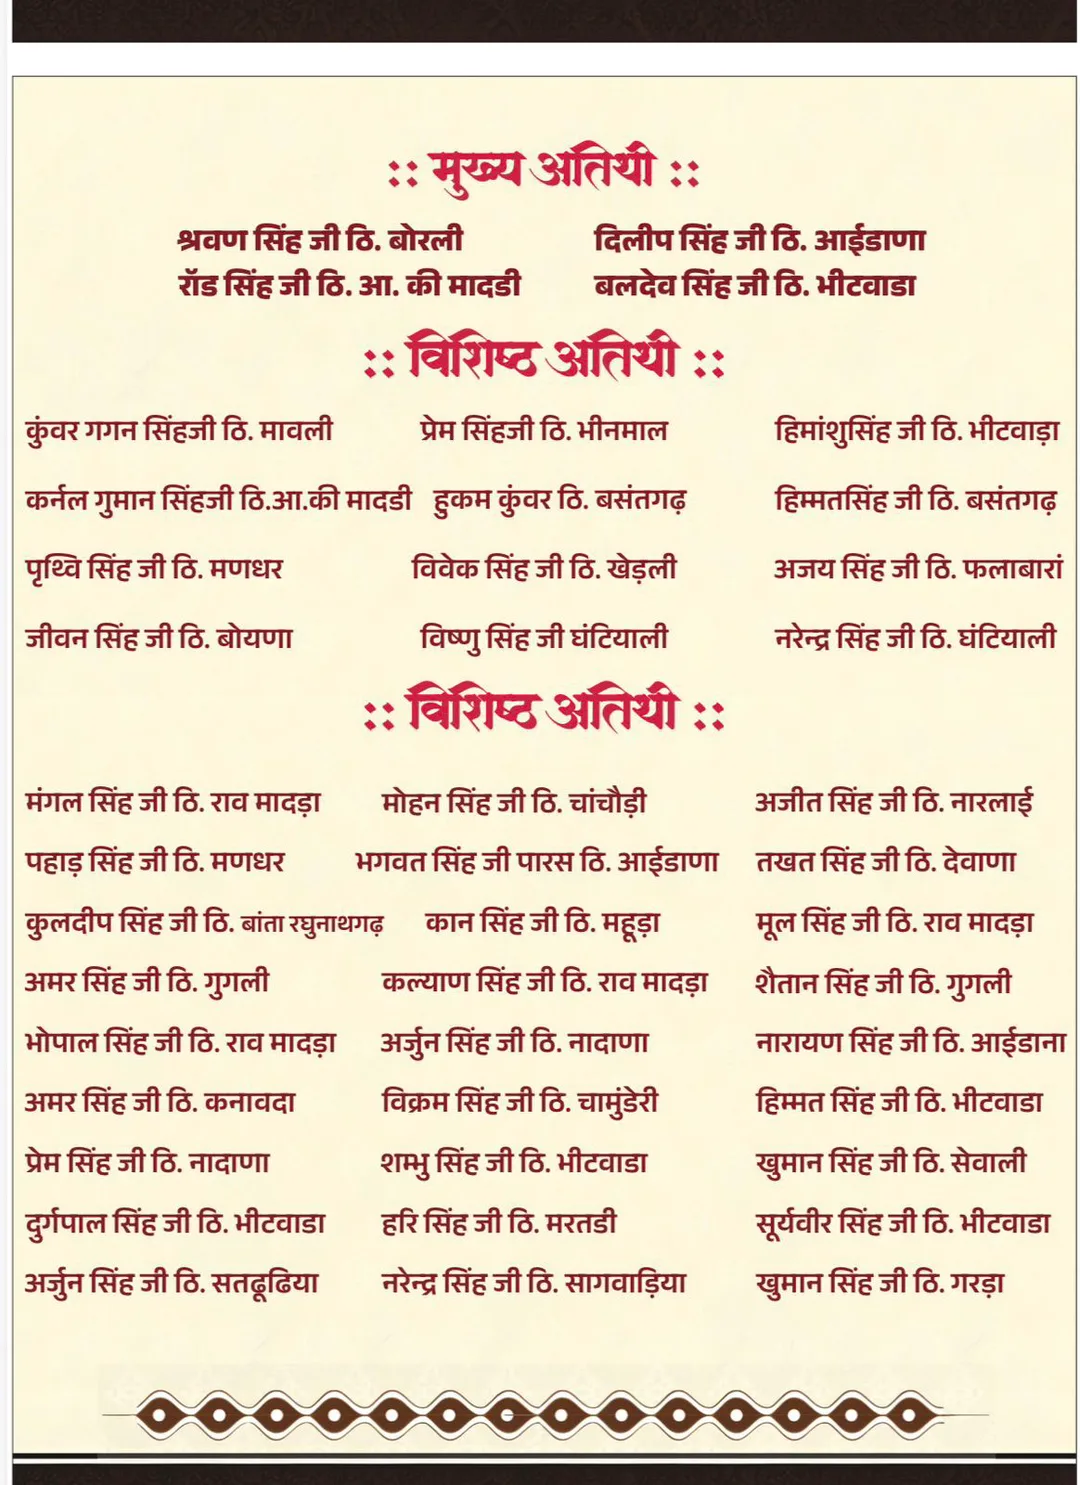 :: मुख्य अतिथी ::
श्रवण सिंह जी ठि. बोरली दिलीप सिंह जी ठि. आईडाणा
रॉड सिंह जी ठि. आ. की मादडी बलदेव सिंह जी ठि. भीटवाडा
:: विशिष्ठ अतिथी ::
कुंवर गगन सिंहजी ठि. मावली प्रेम सिंहजी ठि. भीनमाल हिमांशुसिंह जी ठि. भीटवाड़ा
कर्नल गुमान सिंहजी ठि.आ.की मादडी हुकम कुंवर ठि. बसंतगढ़ हिम्मतसिंह जी ठि. बसंतगढ़
पृथ्वि सिंह जी ठि. मणधर विवेक सिंह जी ठि. खेड़ली अजय सिंह जी ठि. फलाबारां
जीवन सिंह जी ठि. बोयणा विष्णु सिंह जी घंटियाली नरेन्द्र सिंह जी ठि. घंटियाली
:: विशिष्ठ अतिथी ::
मंगल सिंह जी ठि. राव मादड़ा मोहन सिंह जी ठि. चांचौड़ी अजीत सिंह जी ठि. नारलाई
पहाड़ सिंह जी ठि. मणधर भगवत सिंह जी पारस ठि. आईडाणा तखत सिंह जी ठि. देवाणा
कुलदीप सिंह जी ठि. बांता रघुनाथगढ़ कान सिंह जी ठि. महूड़ा मूल सिंह जी ठि. राव मादड़ा
अमर सिंह जी ठि. गुगली कल्याण सिंह जी ठि. राव मादड़ा शैतान सिंह जी ठि. गुगली
भोपाल सिंह जी ठि. राव मादड़ा अर्जुन सिंह जी ठि. नादाणा नारायण सिंह जी ठि. आईडाना
अमर सिंह जी ठि. कनावदा विक्रम सिंह जी ठि. चामुंडेरी हिम्मत सिंह जी ठि. भीटवाडा
प्रेम सिंह जी ठि. नादाणा शम्भु सिंह जी ठि. भीटवाडा खुमान सिंह जी ठि. सेवाली
दुर्गपाल सिंह जी ठि. भीटवाडा हरि सिंह जी ठि. मरतडी सूर्यवीर सिंह जी ठि. भीटवाडा
अर्जुन सिंह जी ठि. सतढूढिया नरेन्द्र सिंह जी ठि. सागवाड़िया खुमान सिंह जी ठि. गरड़ा